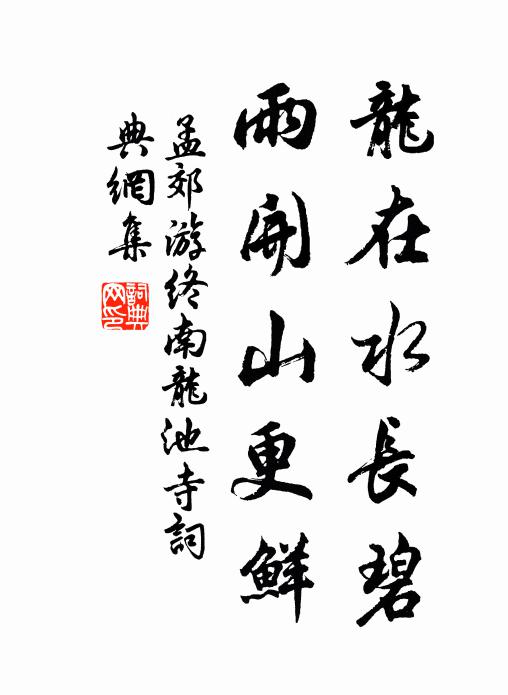 龍在水長碧
雨開山更鮮
孟郊游終南龍池寺詞
典網集
詞典网印